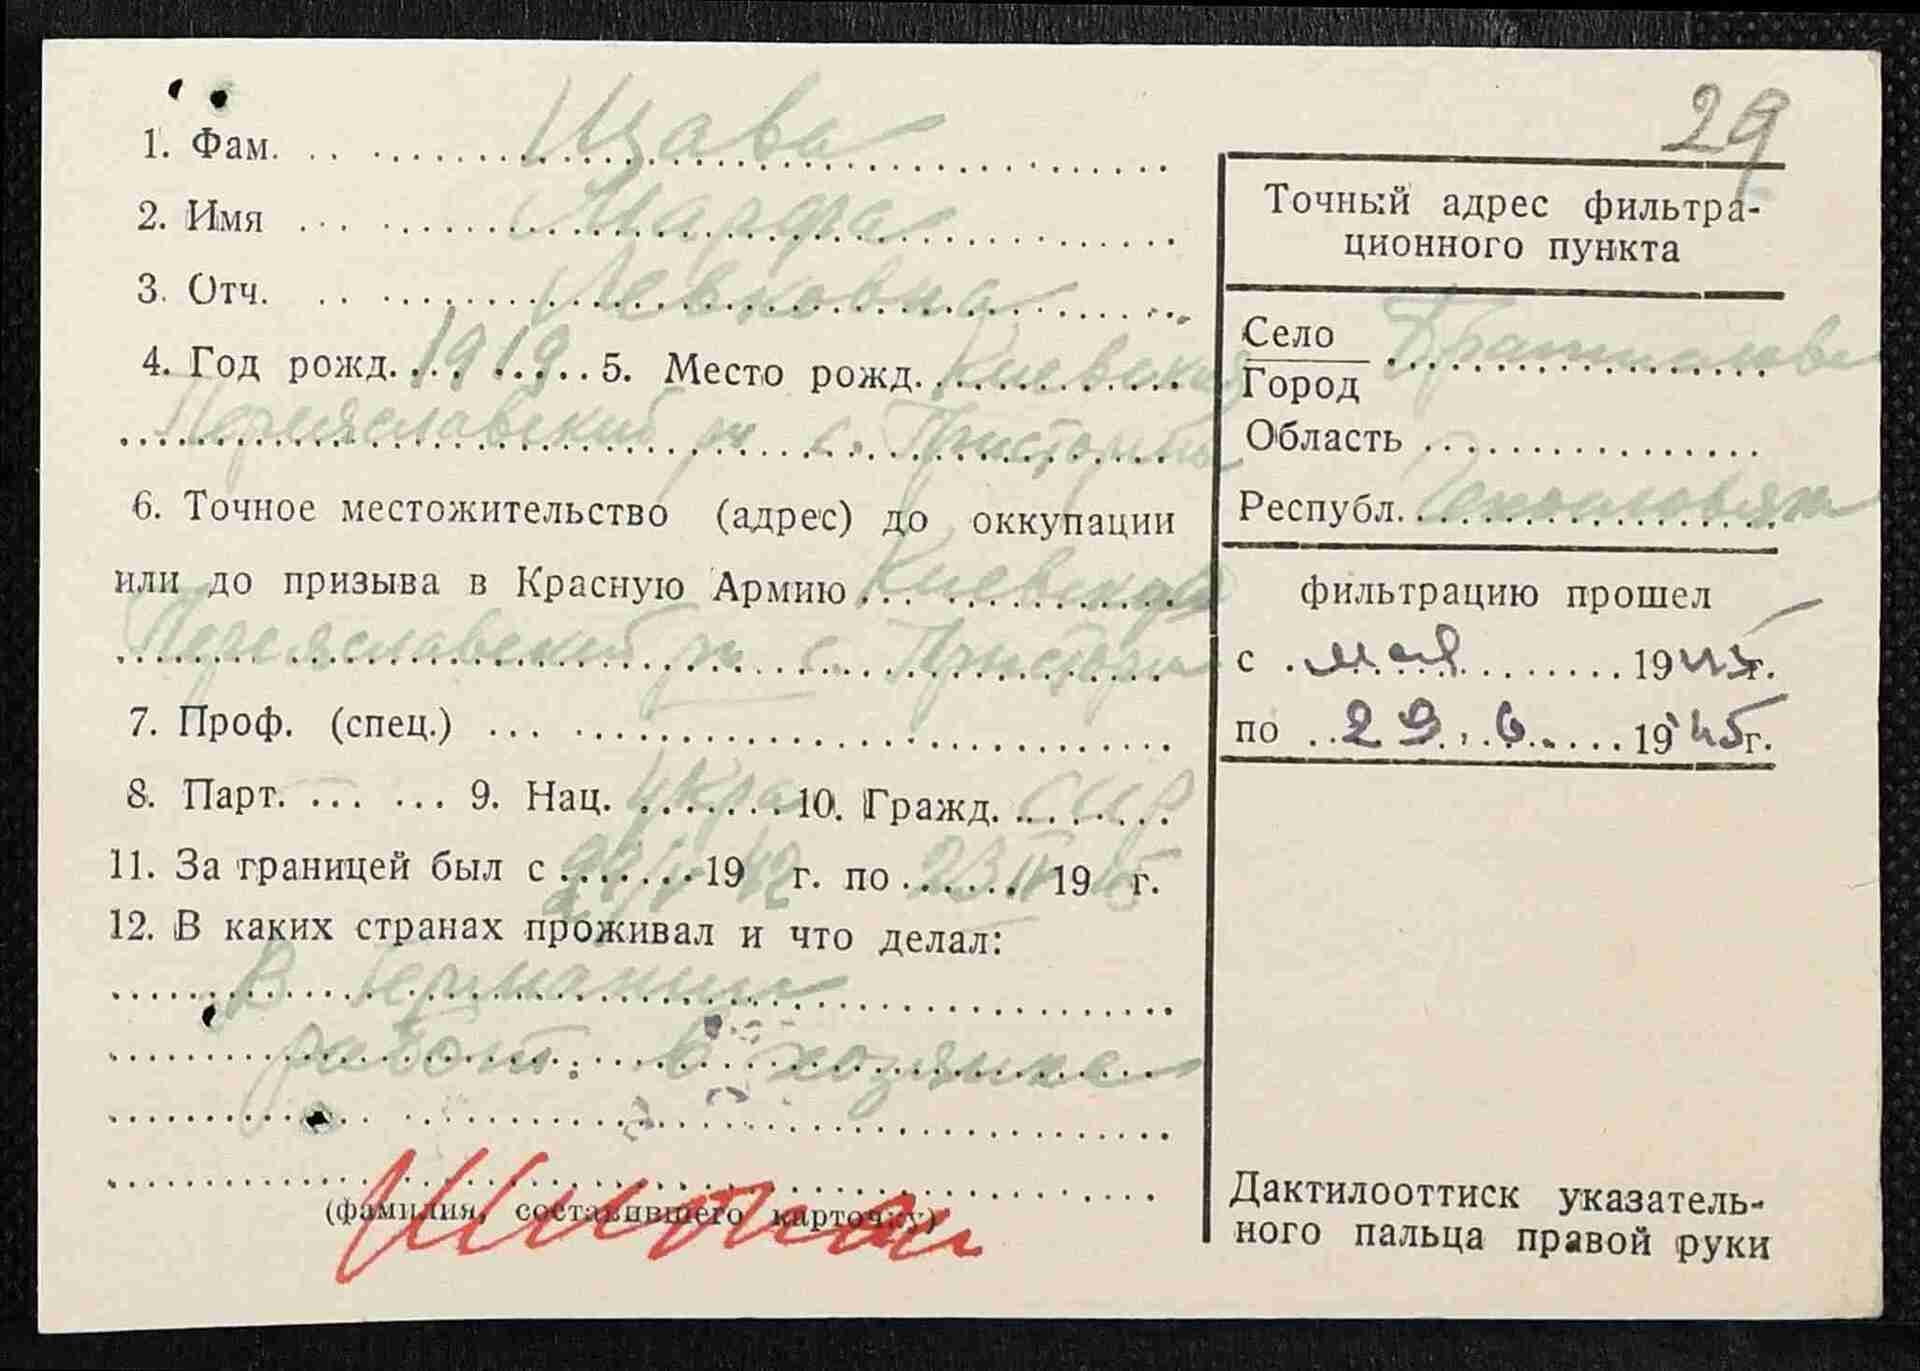 29
1. Фам. Щава
2. Имя Марфа
3. Отч. Левковна
4. Год рожд. 1919 5. Место рожд. Киевская
Переяславский р-н с.
6. Точное местожительство (адрес) до оккупации
или до призыва в Красную Армию Киевская
Переяславский р-н с.
7. Проф. (спец.)
8. Парт. 9. Нац. укра 10. Гражд. СССР
11. За границей был с 1942 г. по 23 IV 1945 г.
12. В каких странах проживал и что делал:
В Германии
работ. в хозяике
(фамилия, составившего карточку)
Точный адрес фильтра-
ционного пункта
Село
Город Братиславе
Область
Республ.
фильтрацию прошел
с мая 1945г.
по 29.6. 1945г.
Дактилооттиск указатель-
ного пальца правой руки